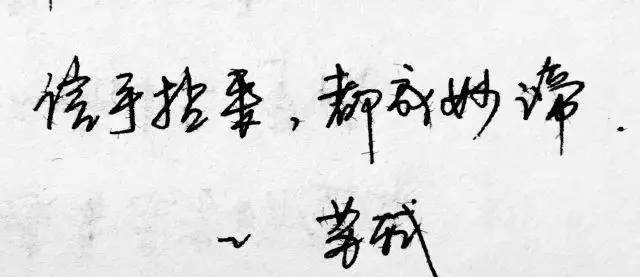 信手拈来，都成妙谛．
~ 苏轼